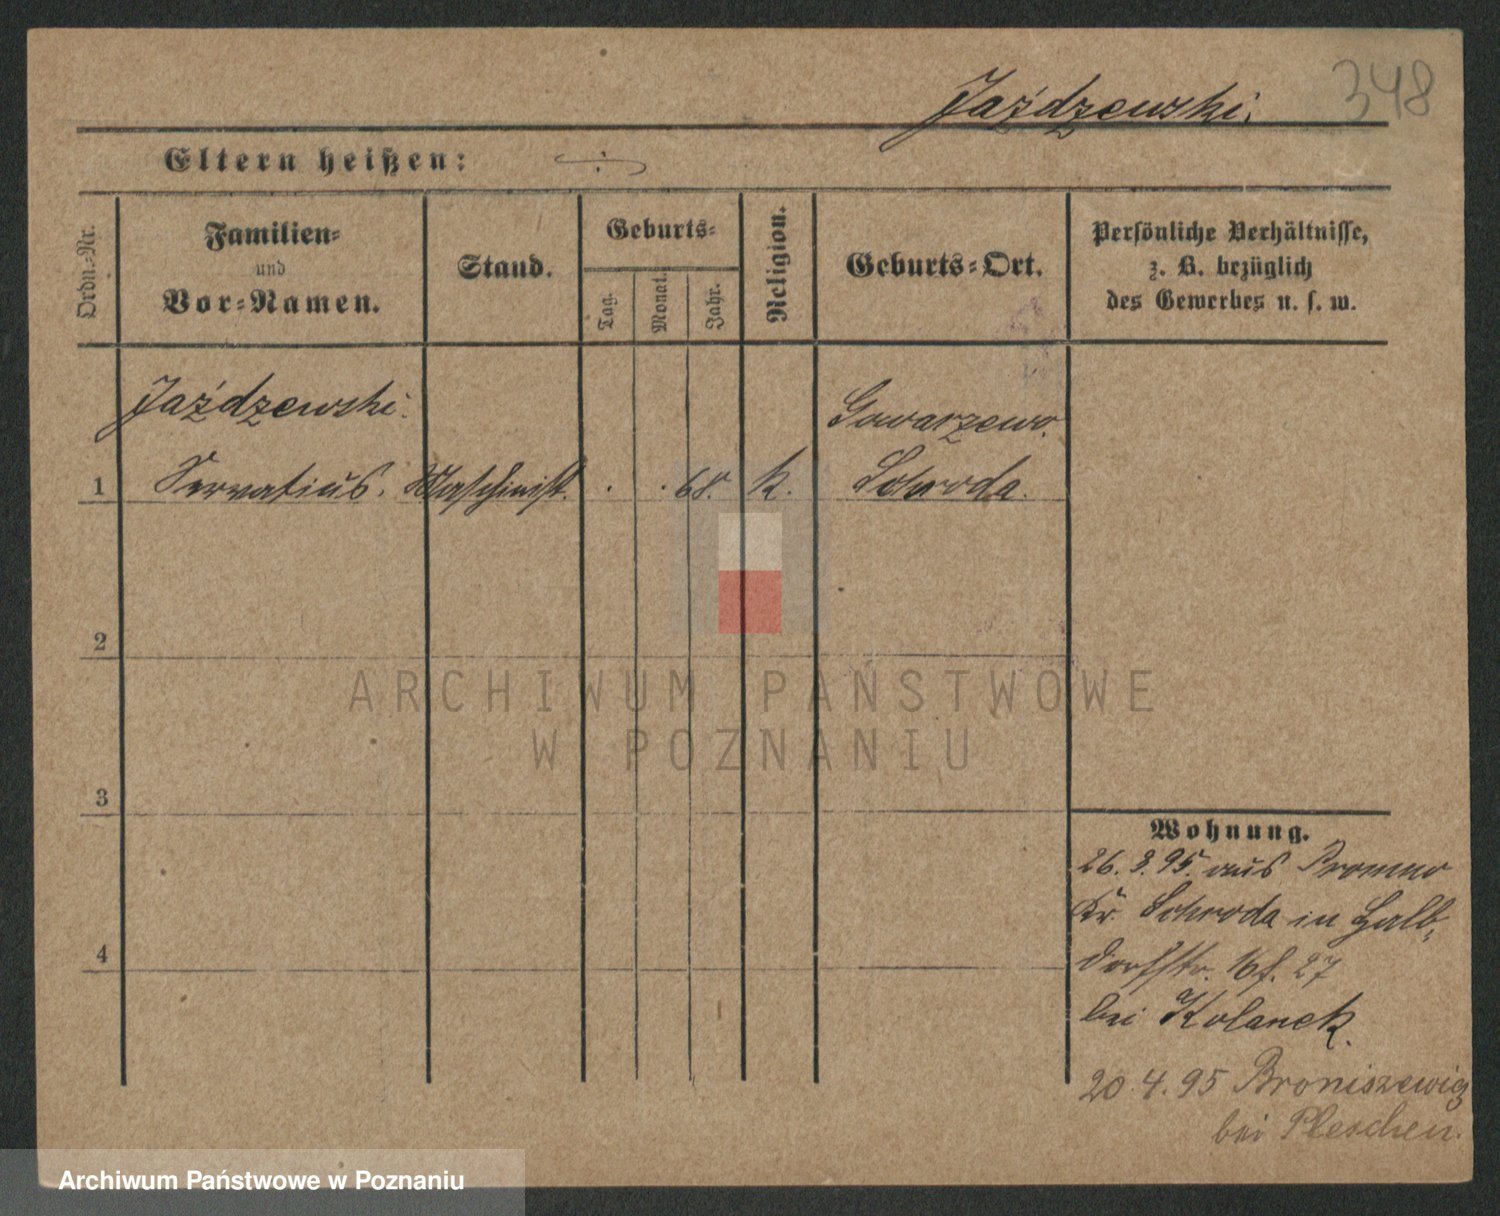 Jaździewski.
348
Eltern heißen: ÷
Ordn.-Nr.
Familien-
und
Vor-Namen.
Stand.
Geburts-
Tag.
Monat.
Jahr.
Religion.
Geburts-Ort.
Persönliche Verhältnisse,
z. B. bezüglich
des Gewerbes u. s. w.
Jaździewski.
Gowarzewo.
1 Servatius. Maschinist. . . 68. k. Schroda.
2
ARCHIWUM PAŃSTWOWE
W POZNANIU
3
Wohnung.
26. 3. 95. aus Promno
Kr. Schroda in Halb-
dorfstr. 27
bei Kolanek.
4
20. 4. 95 Broniszewicz
bei Pleschen.
Archiwum Państwowe w Poznaniu